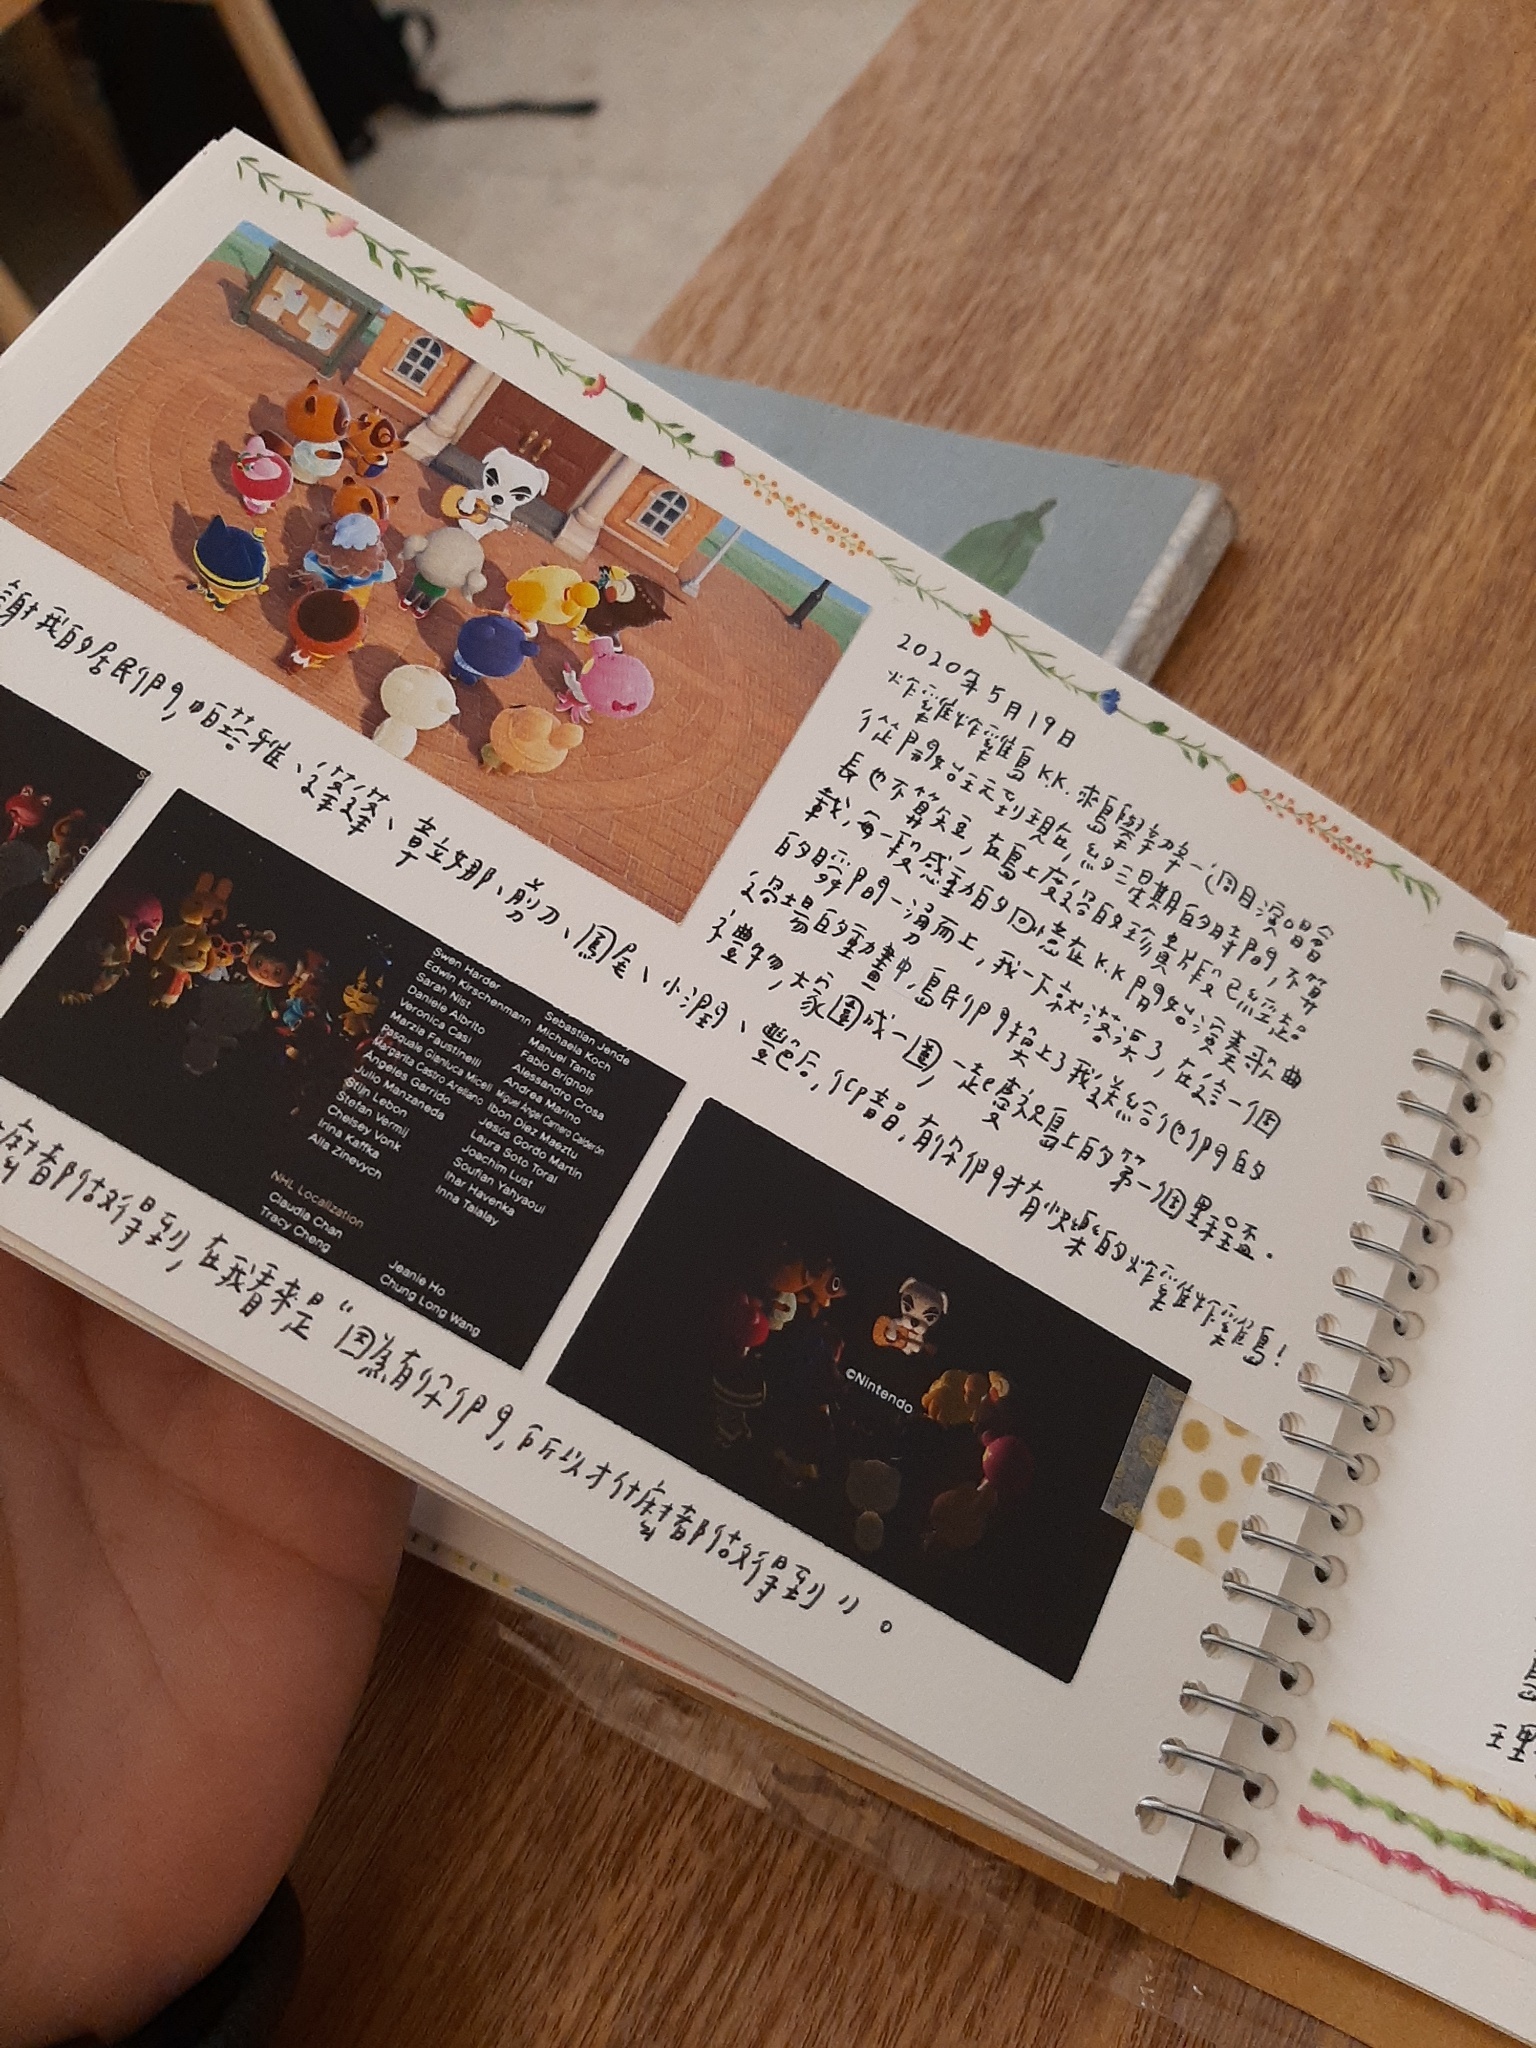 2020年5月19日
炸雞炸雞島K.K.來島舉辦一週目演唱會
從開始玩到現在,約三星期的時間,不算
長也不算短,在島上度過的珍貴片段已經超
載,每一段感動的回憶在K.K開始演奏歌曲
的瞬間一湧而上,我一下就落淚了,在這一個
過場的動畫中,島民們換上了我送給他們的
禮物,大家圍成一圈,一起慶祝島上的第一個里程
謝我的居民們,雅、章立娜、剪刀、鳳尾、小潤、艷后,有你們才有快樂的炸雞炸雞島!
Swen Harder
Edwin Kirschenmann
Sarah Nist
Daniele Albrito
Veronica Casi
Marzia Faustinelli
Pasquale Gianluca Miceli
Margarita Castro Arellano
Angeles Garrido
Julio Manzaneda
Stijn Lebon
Stefan Vermij
Chelsey Vonk
Irina Kafka
Alla Zinevych
Sebastian Jende
Michaela Koch
Manuel Tants
Fabio Brignoli
Alessandro Crosa
Andrea Marino
Miguel Angel Camero Calderón
Ibon Díez Maeztu
Jesús Gordo Martin
Laura Soto Toral
Joachim Lust
Soufian Yahyaoui
Ihar Havenka
Inna Talalay
NHL Localization
Claudia Chan
Tracy Cheng
Jeanie Ho
Chung Long Wang
©Nintendo
麼都做得到,在我看來是"因為有你們,所以才什麼都做得到"。
理